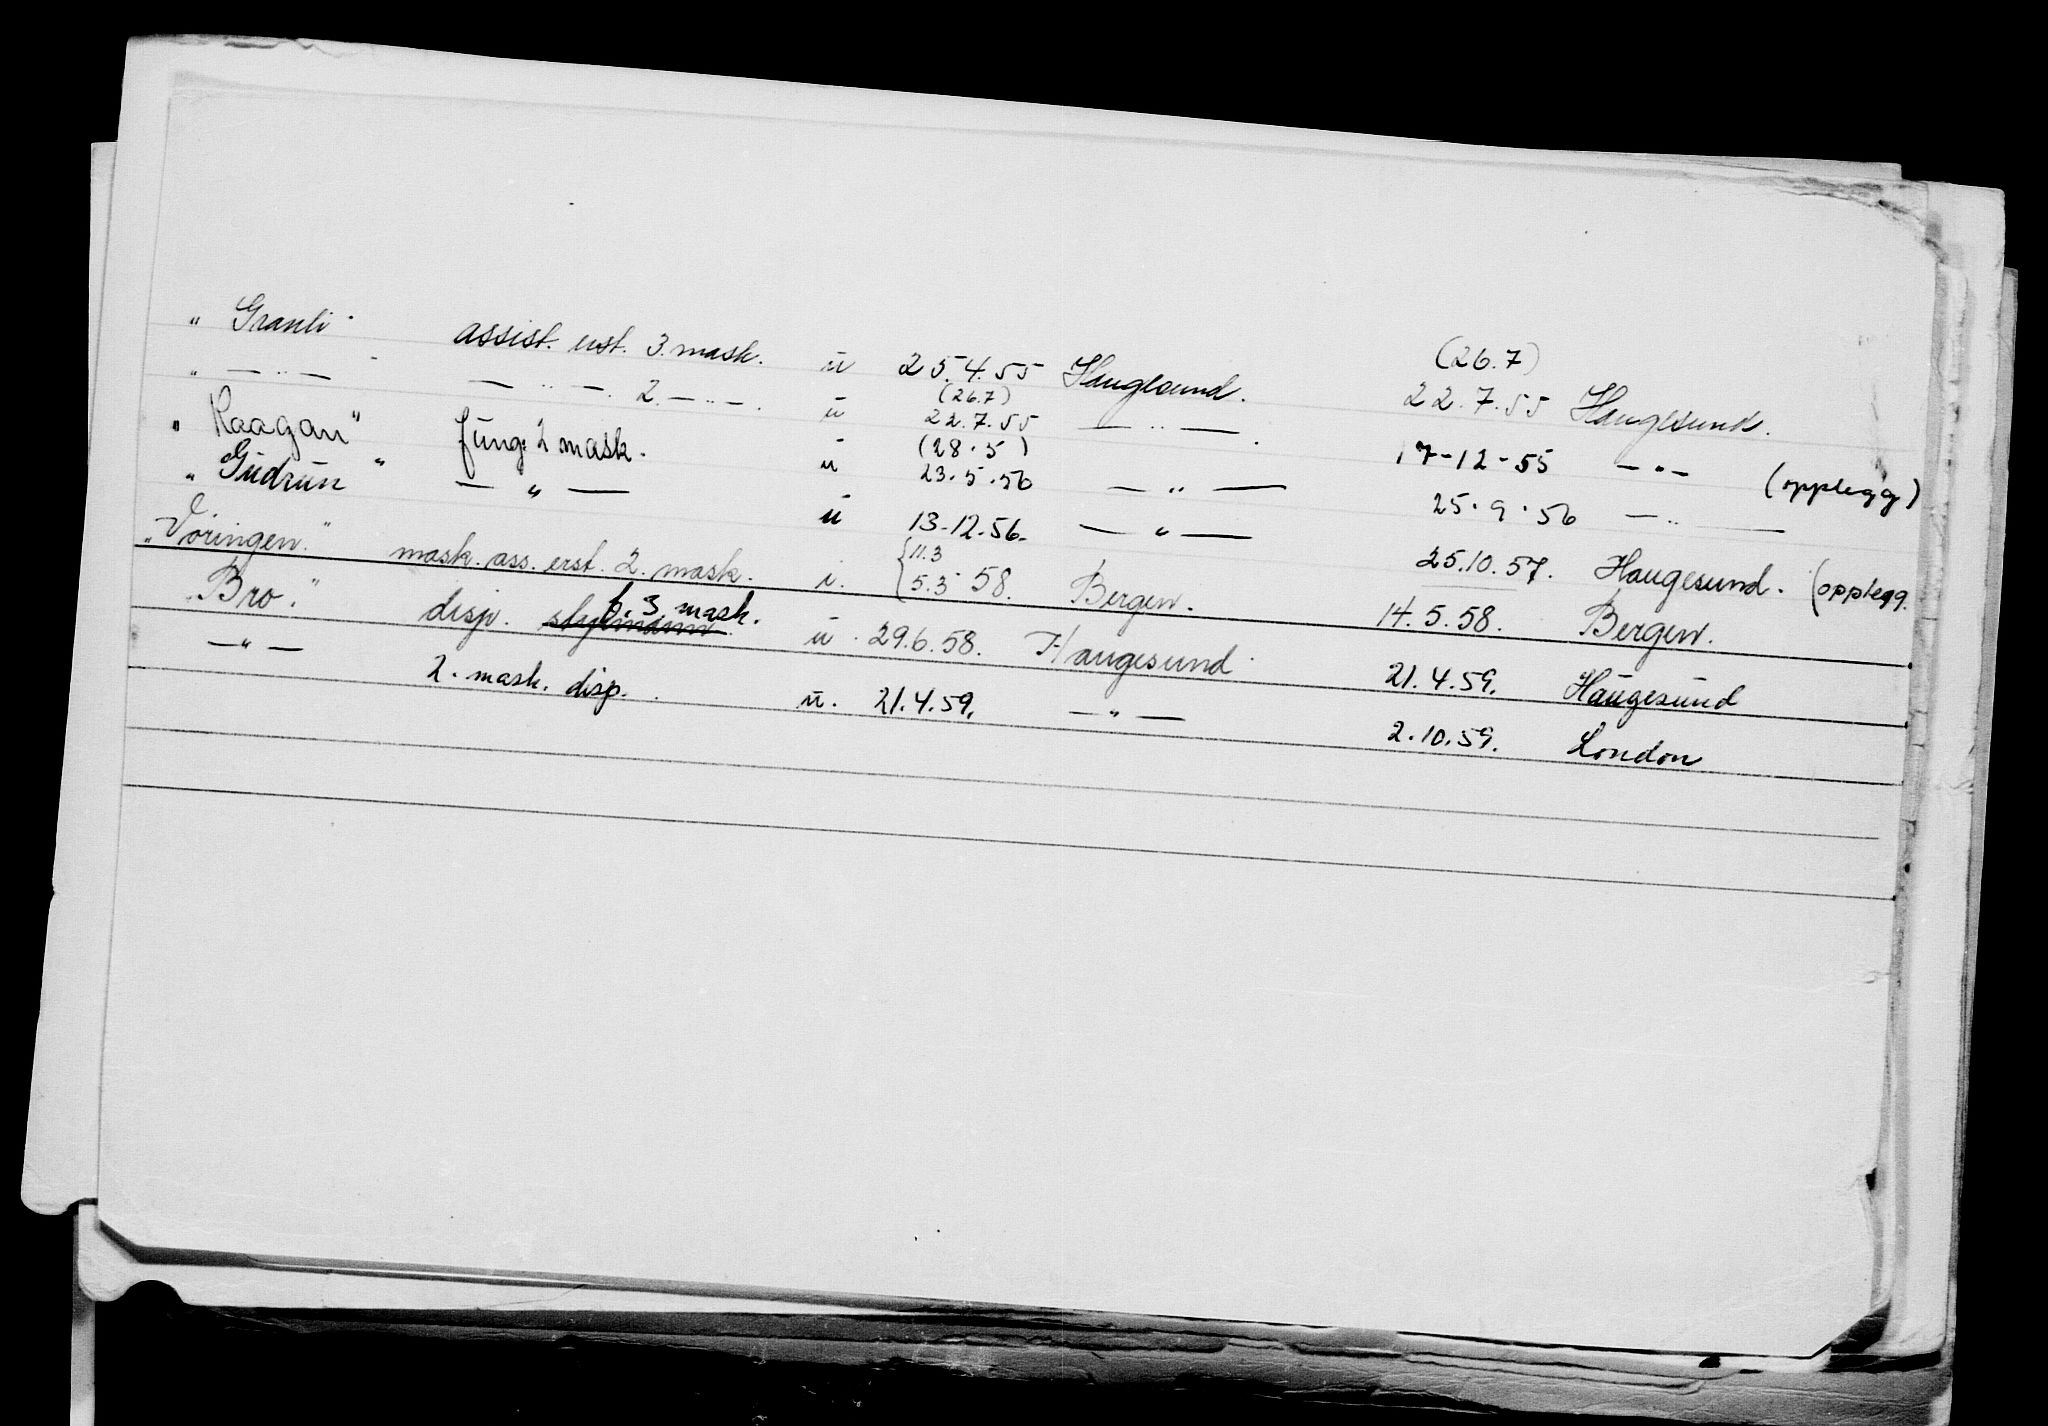 " Granli " assist. erst. 3. mask. u 25.4.55 Haugesund. (26.7) 22.7.55 Haugesund.
" — " — — " —. 2. — " —. u (26.7) 22.7.55 — " —. 17-12-55 — " — (opplegg)
" Raagan" fung. 2 mask. u (28.5) 23.5.56 — " — 25.9.56 — " —
" Gudrun " — " — u 13-12-56. — " — 25.10.57. Haugesund. (opplegg.
"Vøringen." mask. ass. erst. 2. mask. i. {11.3 5.3 58. Bergen. 14.5.58. Bergen.
"Bro." disp. f. 3 mask. u. 29.6.58. Haugesund. 21.4.59. Haugesund
— " — 2. mask. disp. u. 21.4.59. — " — 2.10.59. London